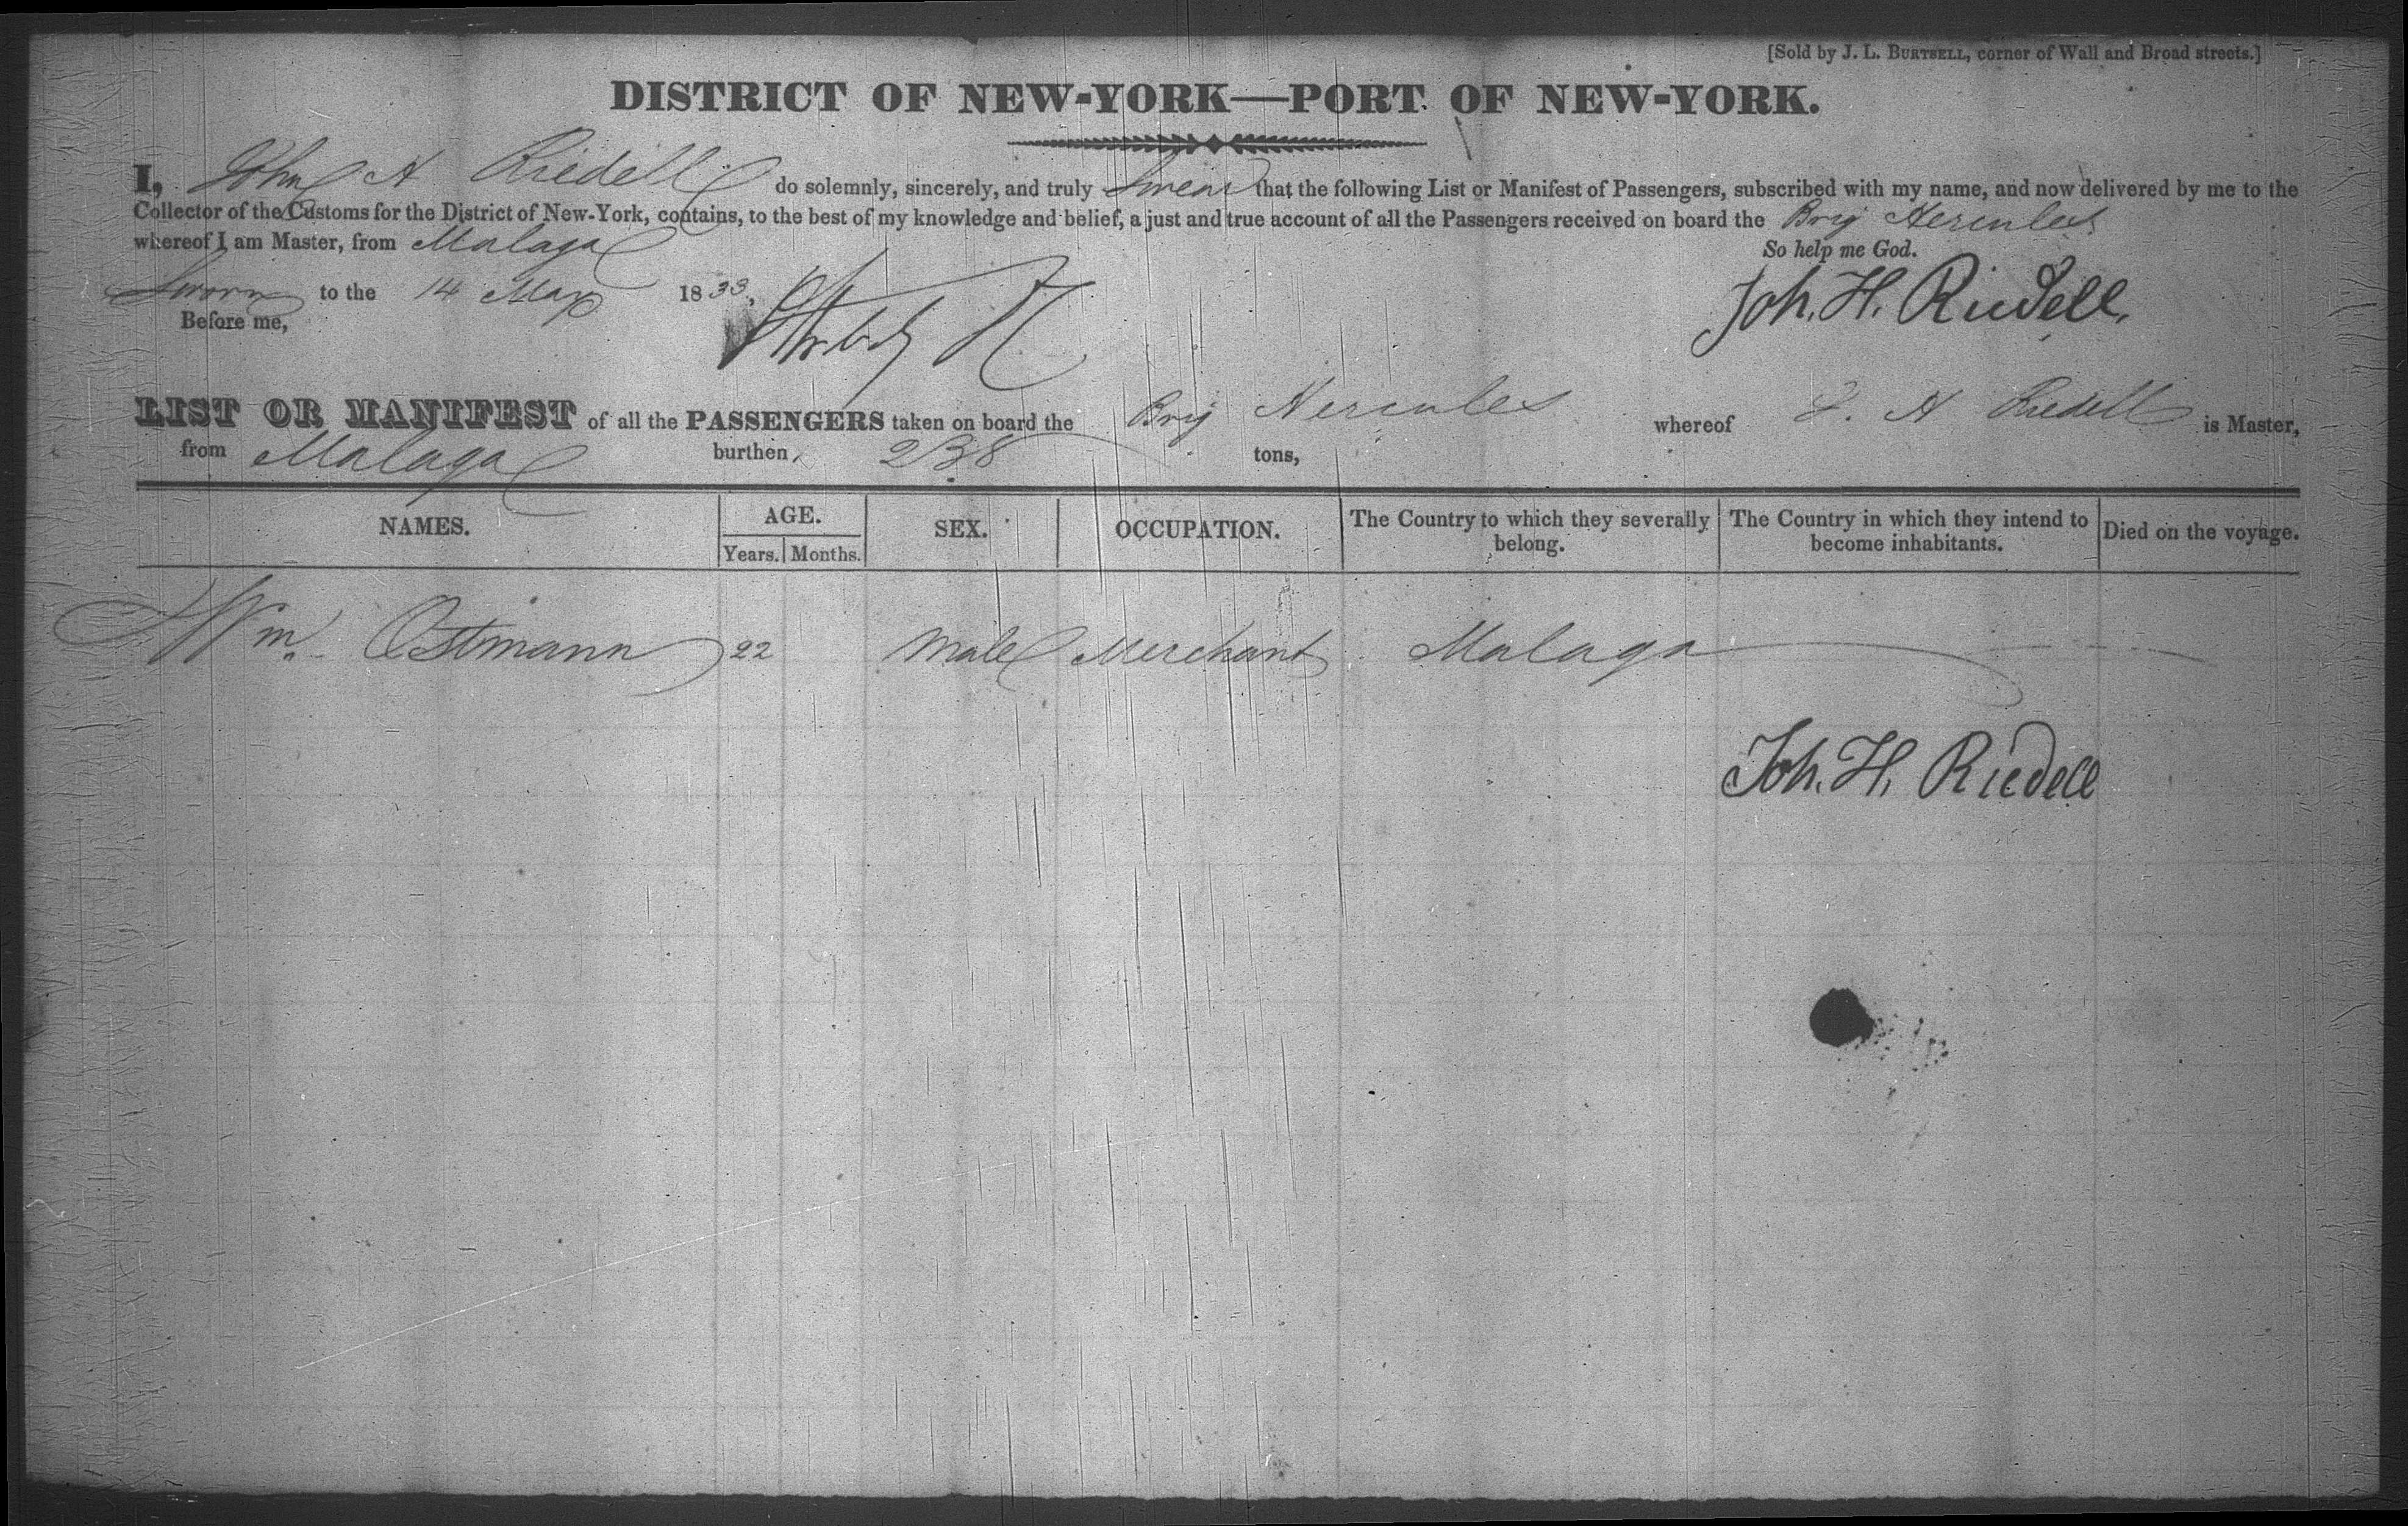 [Sold by J. L. BURTSELL, corner of Wall and Broad streets.]
DISTRICT OF NEW-YORK—PORT OF NEW-YORK.
I, John H Riedell do solemnly, sincerely, and truly Swear that the following List or Manifest of Passengers, subscribed with my name, and now delivered by me to the
Collector of the Customs for the District of New-York, contains, to the best of my knowledge and belief, a just and true account of all the Passengers received on board the Brig Hercules
whereof I am Master, from Malaga
So help me God.
Sworn to the 14 May 1833,
Joh. H. Riedell.
Before me,
LIST OR MANIFEST of all the PASSENGERS taken on board the Brig Hercules whereof J. H Riedell is Master,
from Malaga burthen, 238 tons,
NAMES. AGE. Years. Months. SEX. OCCUPATION. The Country to which they severally belong. The Country in which they intend to become inhabitants. Died on the voyage.
Wm. Ostmann 22 Male Merchant Malaga
Joh. H. Riedell